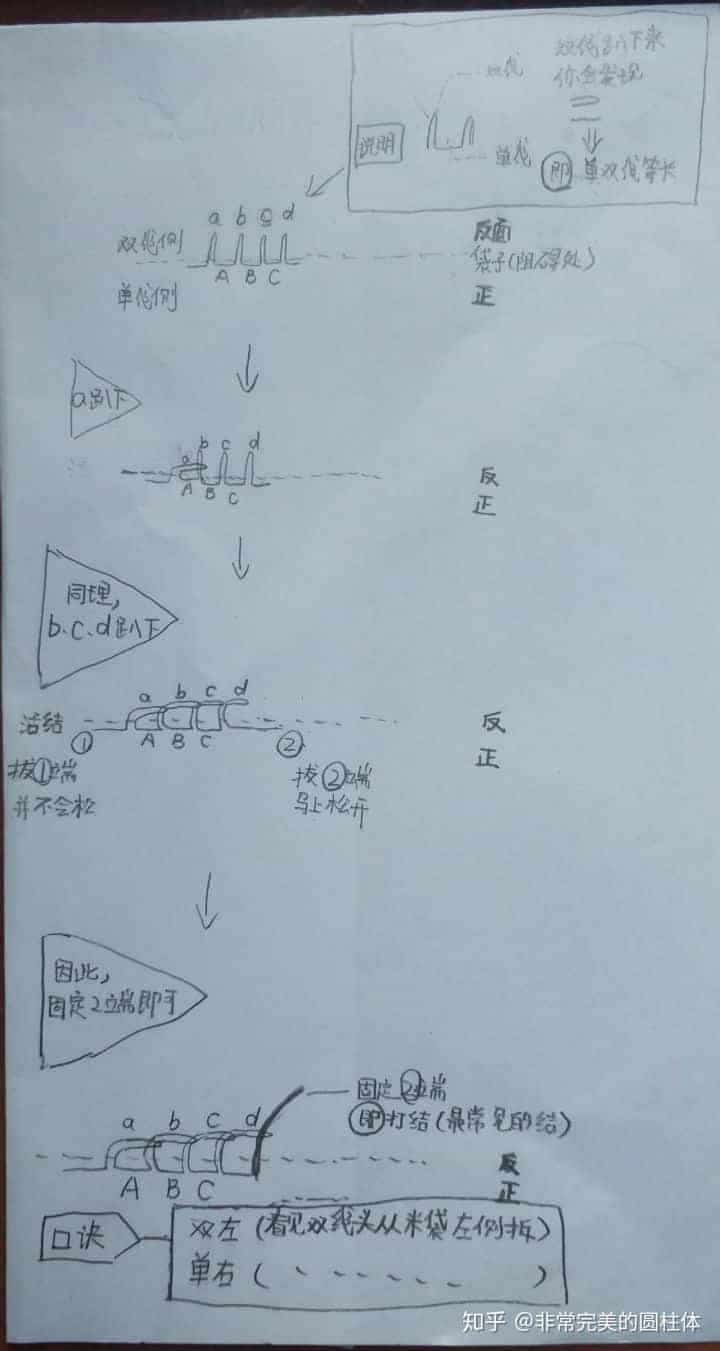 双线趴下来
你会发现
双线
说明
单线
即 单双线等长
a b c d
双线侧
反面
袋子(阻碍处)
A B C
单线侧
正
a趴下
b c d
a
A B C
反
正
同理,
b.c.d趴下
a b c d
活结
反
① A B C ②
正
拔①端
并不会松
拔②端
马上松开
因此,
固定2端即可
固定②端
即打结(最常见的结)
a b c d
反
A B C
正
口诀
双左(看见双线头从米袋左侧拆)
单右( 、 、 、 、 、 、 )
知乎 @非常完美的圆柱体